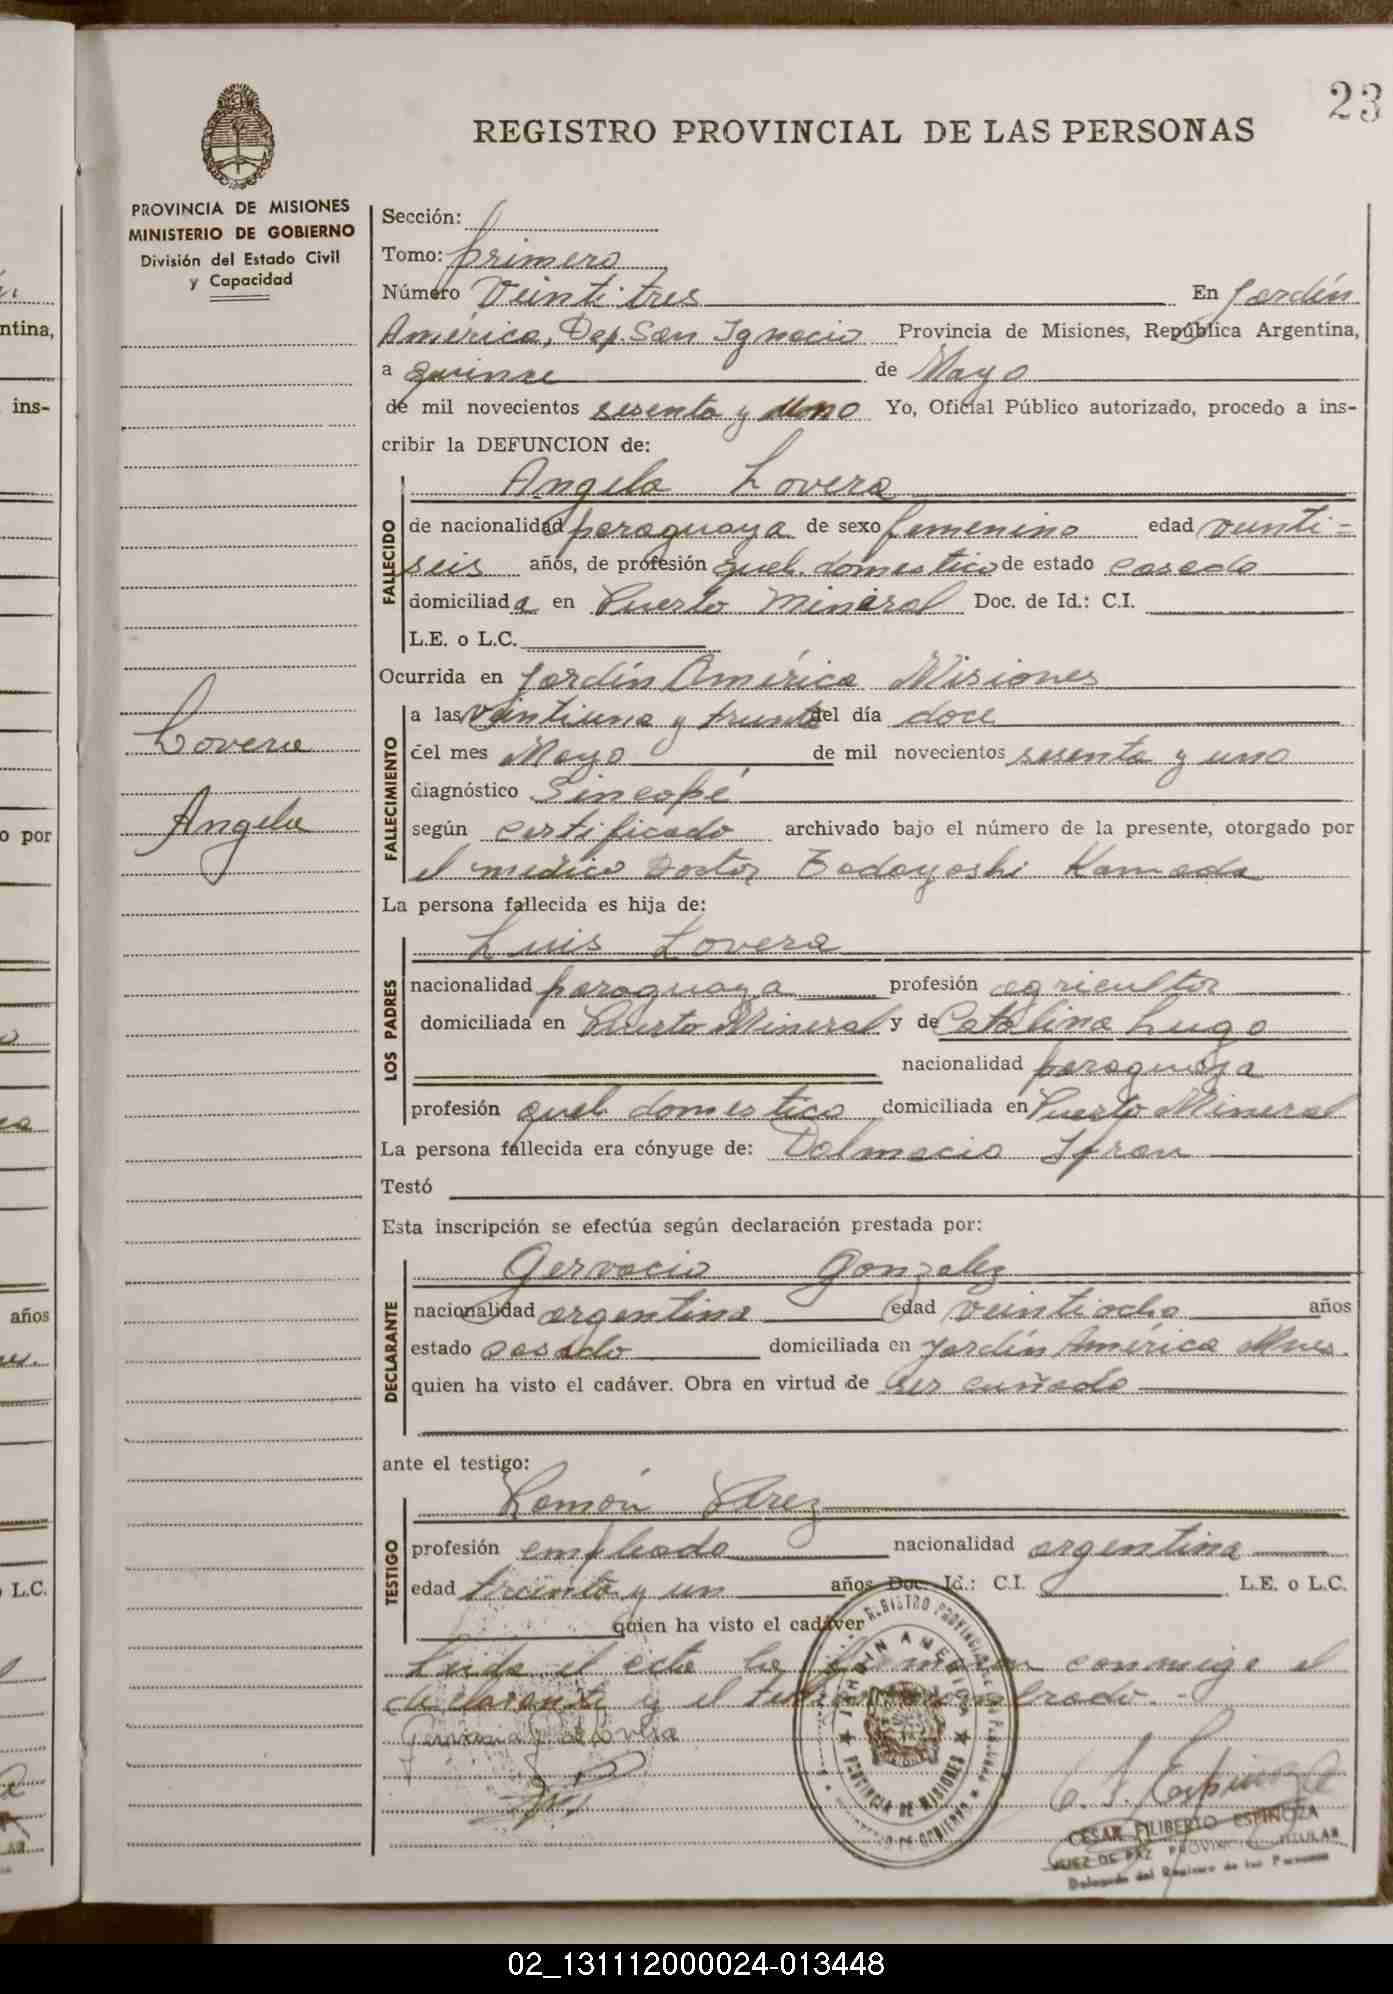 23
REGISTRO PROVINCIAL DE LAS PERSONAS
PROVINCIA DE MISIONES
MINISTERIO DE GOBIERNO
División del Estado Civil
y Capacidad
Lovera
Angela
Sección:
Tomo: primero
Número Veinti tres En Jardín
América, Dep. San Ignacio Provincia de Misiones, República Argentina,
a quince de Mayo
de mil novecientos sesenta y uno Yo, Oficial Público autorizado, procedo a ins-
cribir la DEFUNCION de:
Angela Lovera
FALLECIDO
de nacionalidad paraguaya de sexo femenino edad veinti-
seis años, de profesión queh. domestico de estado casada
domiciliada en Puerto Mineral Doc. de Id.: C.I.
L.E. o L.C.
Ocurrida en Jardín América Misiones
FALLECIMIENTO
a las veintiuna y treinta del día doce
del mes Mayo de mil novecientos sesenta y uno
diagnóstico Sincopé
según certificado archivado bajo el número de la presente, otorgado por
el medico Doctor Tadayoshi Kamada
La persona fallecida es hija de:
Luis Lovera
LOS PADRES
nacionalidad paraguaya profesión agricultor
domiciliada en Puerto Mineral y de Catalina Lugo
nacionalidad paraguaya
profesión queh. domestico domiciliada en Puerto Mineral
La persona fallecida era cónyuge de: Dalmacio Ifran
Testó
Esta inscripción se efectúa según declaración prestada por:
Gervacio Gonzalez
DECLARANTE
nacionalidad argentina edad veintiocho años
estado casado domiciliada en Jardín América Mnes.
quien ha visto el cadáver. Obra en virtud de ser cuñado
ante el testigo:
Ramón Perez
TESTIGO
profesión empleado nacionalidad argentina
edad treinta y un años Doc. Id.: C.I. L.E. o L.C.
quien ha visto el cadáver
Leida el acta la firman conmigo el
declarante y el testigo nombrado.-
REGISTRO PROVINCIAL DE LAS PERSONAS
JARDIN AMERICA
PROVINCIA DE MISIONES
MINISTERIO DE GOBIERNO
C. F. Espinoza
CESAR FILIBERTO ESPINOZA
JUEZ DE PAZ PROVINCIAL TITULAR
Delegado del Registro de las Personas
ntina,
ins-
o por
años
L.C.
02_131112000024-013448